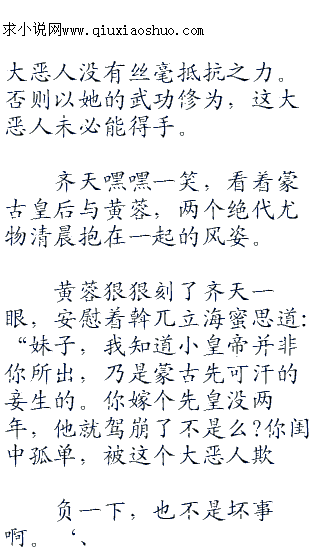 求小说网www.qiuxiaoshuo.com
大恶人没有丝毫抵抗之力。
否则以她的武功修为，这大
恶人未必能得手。
齐天嘿嘿一笑，看着蒙
古皇后与黄蓉，两个绝代尤
物清晨抱在一起的风姿。
黄蓉狠狠刻了齐天一
眼，安慰着斡兀立海蜜思道:
“妹子，我知道小皇帝并非
你所出，乃是蒙古先可汗的
妾生的。你嫁个先皇没两
年，他就驾崩了不是么?你闺
中孤单，被这个大恶人欺
负一下，也不是坏事
啊。‘、